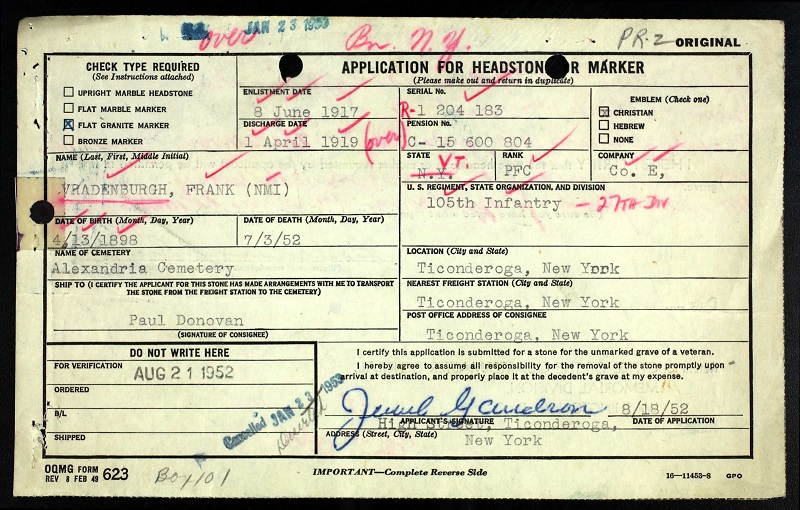 JAN 23 1953
over
Bn. N.Y.
PR-2 ORIGINAL
CHECK TYPE REQUIRED
(See Instructions attached)
UPRIGHT MARBLE HEADSTONE
FLAT MARBLE MARKER
X FLAT GRANITE MARKER
BRONZE MARKER
APPLICATION FOR HEADSTONE OR MARKER
(Please make out and return in duplicate)
ENLISTMENT DATE
8 June 1917
DISCHARGE DATE
1 April 1919 (over)
SERIAL No.
R-1 204 183
PENSION No.
C- 15 600 804
EMBLEM (Check one)
X CHRISTIAN
HEBREW
NONE
NAME (Last, First, Middle Initial)
VRADENBURGH, FRANK (NMI)
STATE VT.
N.Y.
RANK
PFC
COMPANY
Co. E,
U. S. REGIMENT, STATE ORGANIZATION, AND DIVISION
105th Infantry - 27TH DIV
DATE OF BIRTH (Month, Day, Year)
4/13/1898
DATE OF DEATH (Month, Day, Year)
7/3/52
NAME OF CEMETERY
Alexandria Cemetery
LOCATION (City and State)
Ticonderoga, New York
SHIP TO (I CERTIFY THE APPLICANT FOR THIS STONE HAS MADE ARRANGEMENTS WITH ME TO TRANSPORT
THE STONE FROM THE FREIGHT STATION TO THE CEMETERY)
NEAREST FREIGHT STATION (City and State)
Ticonderoga, New York
Paul Donovan
(SIGNATURE OF CONSIGNEE)
POST OFFICE ADDRESS OF CONSIGNEE
Ticonderoga, New York
DO NOT WRITE HERE
FOR VERIFICATION
AUG 21 1952
ORDERED
B/L
SHIPPED
Cancelled JAN 23 1953
I certify this application is submitted for a stone for the unmarked grave of a veteran.
I hereby agree to assume all responsibility for the removal of the stone promptly upon
arrival at destination, and properly place it at the decedent's grave at my expense.
8/18/52
APPLICANT'S SIGNATURE
DATE OF APPLICATION
High Street, Ticonderoga,
ADDRESS (Street, City, State)
New York
OQMG FORM
REV 8 FEB 49 623
Box 101
IMPORTANT—Complete Reverse Side
16—11453-8 GPO